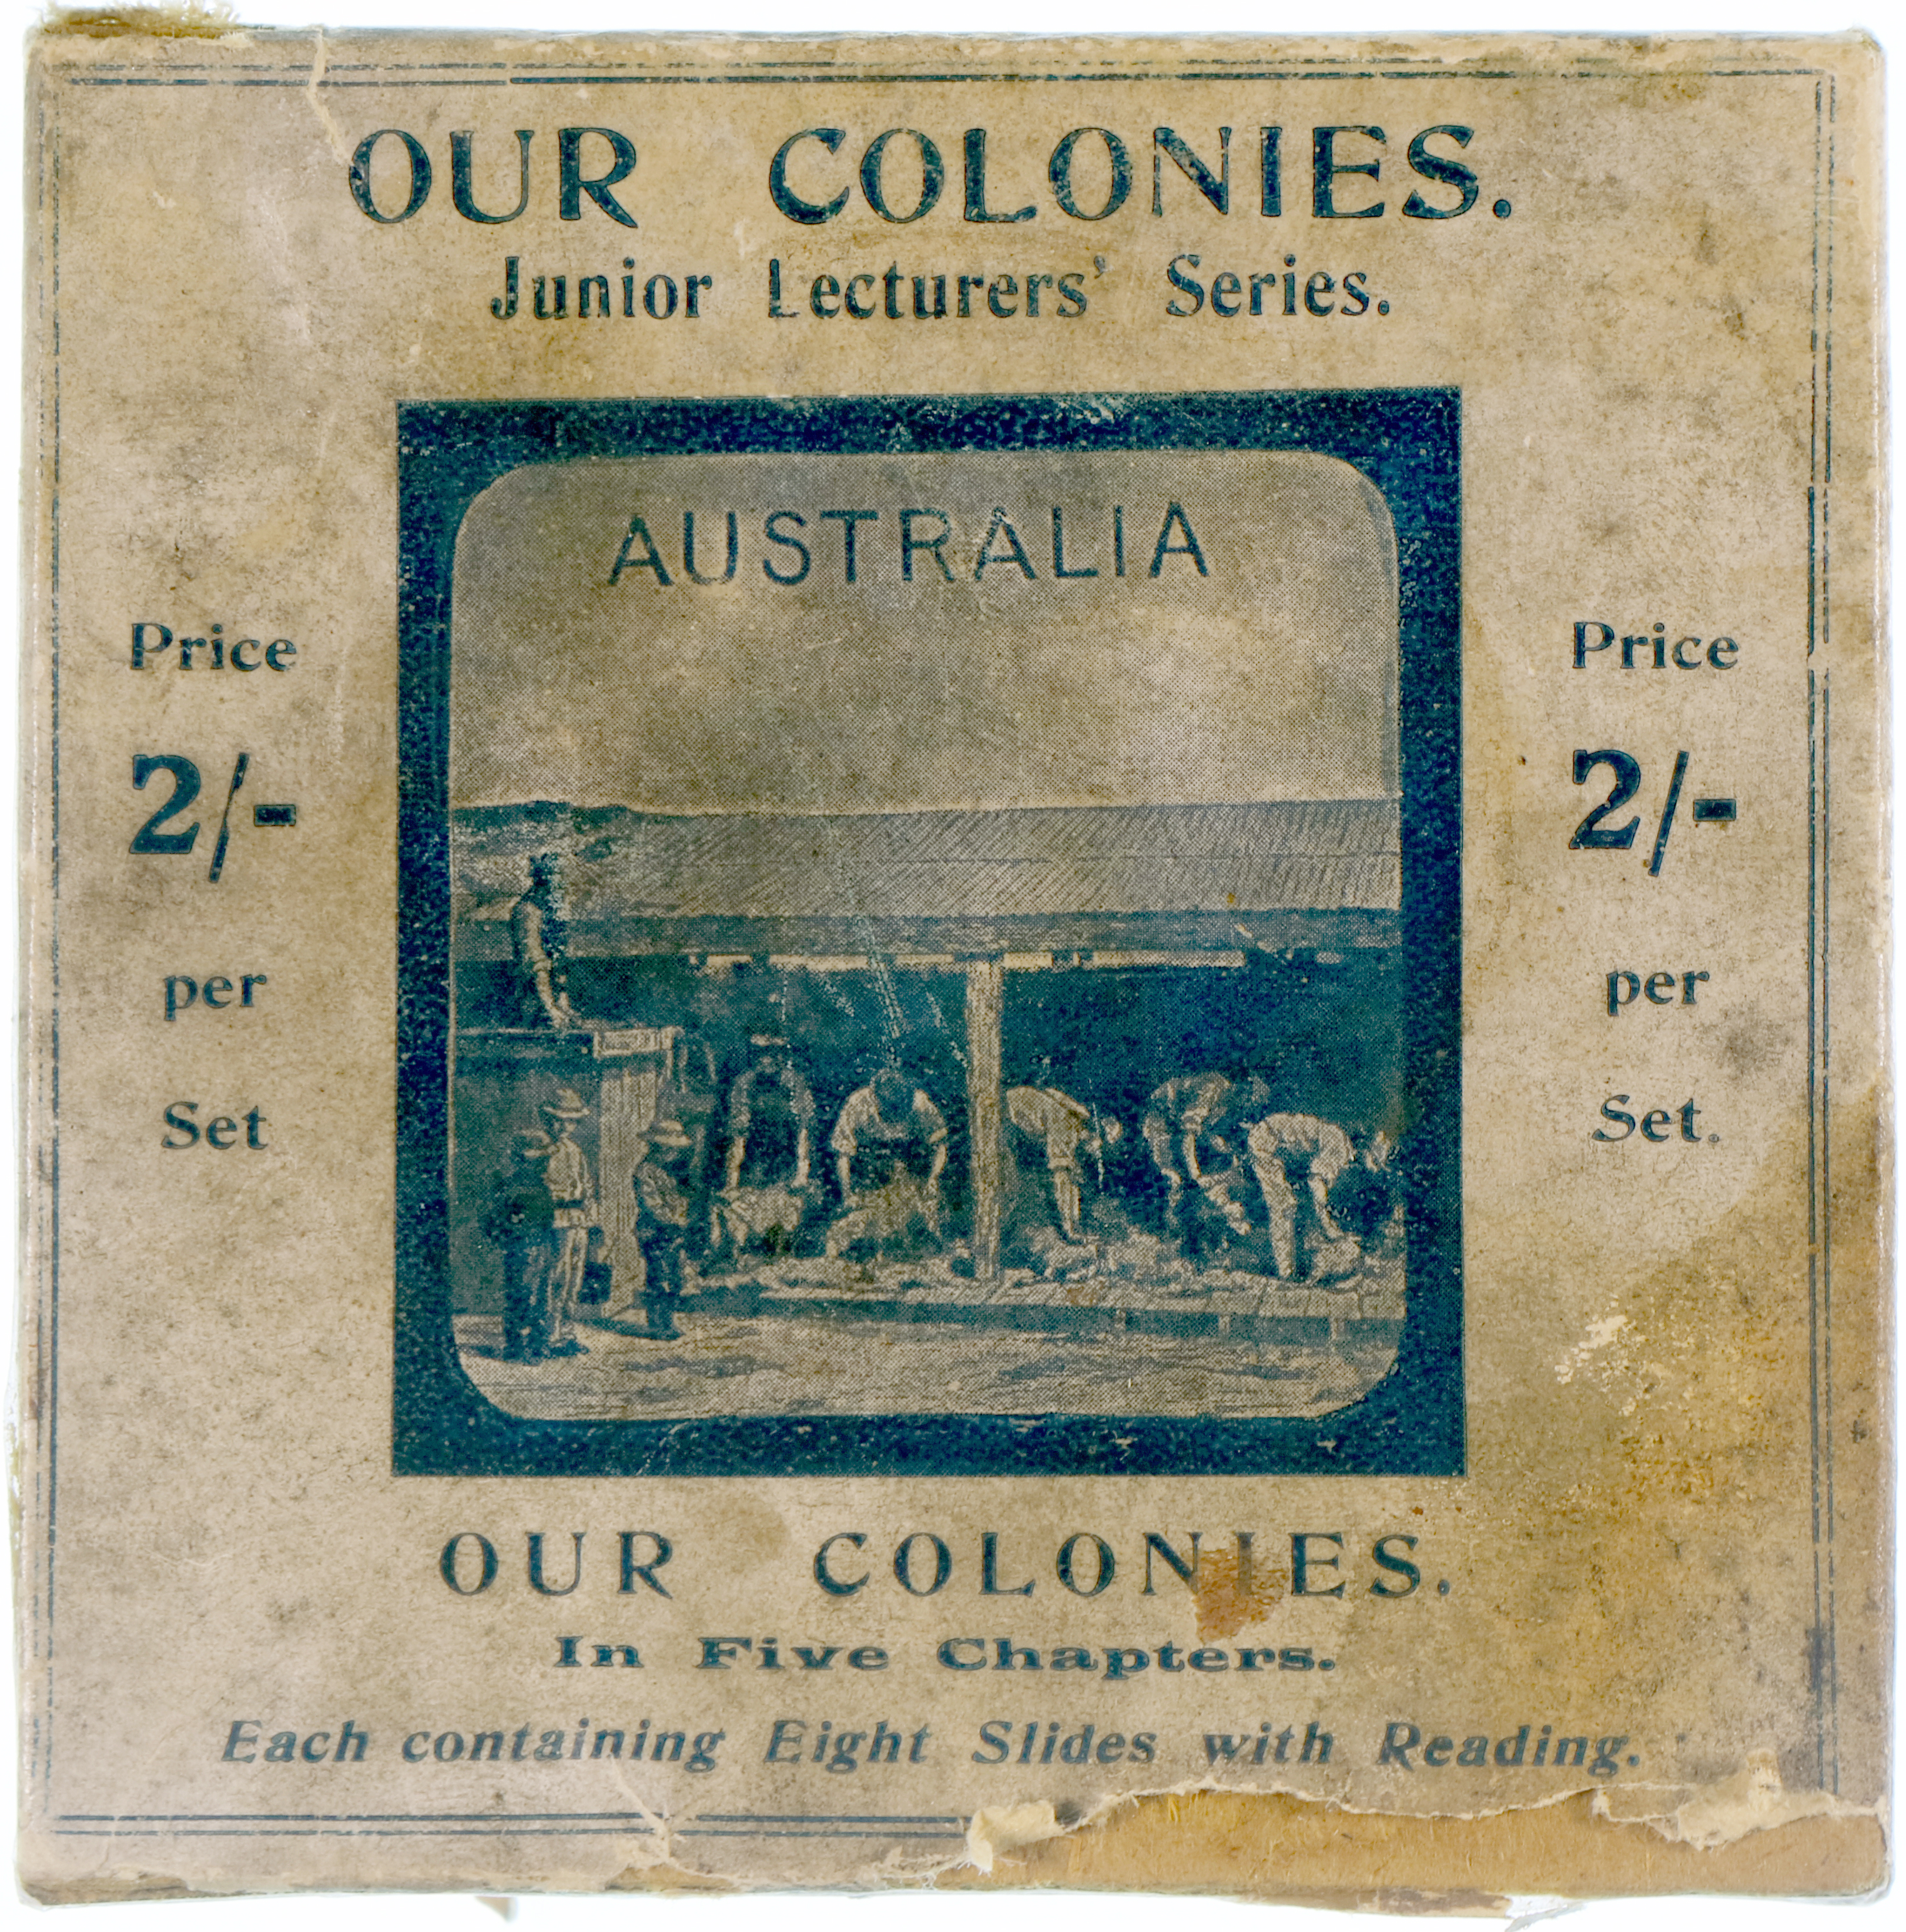 OUR COLONIES.
Junior Lecturers' Series.
AUSTRALIA
Price
2/-
per
Set
Price
2/-
per
Set.
OUR COLONIES.
In Five Chapters.
Each containing Eight Slides with Reading.